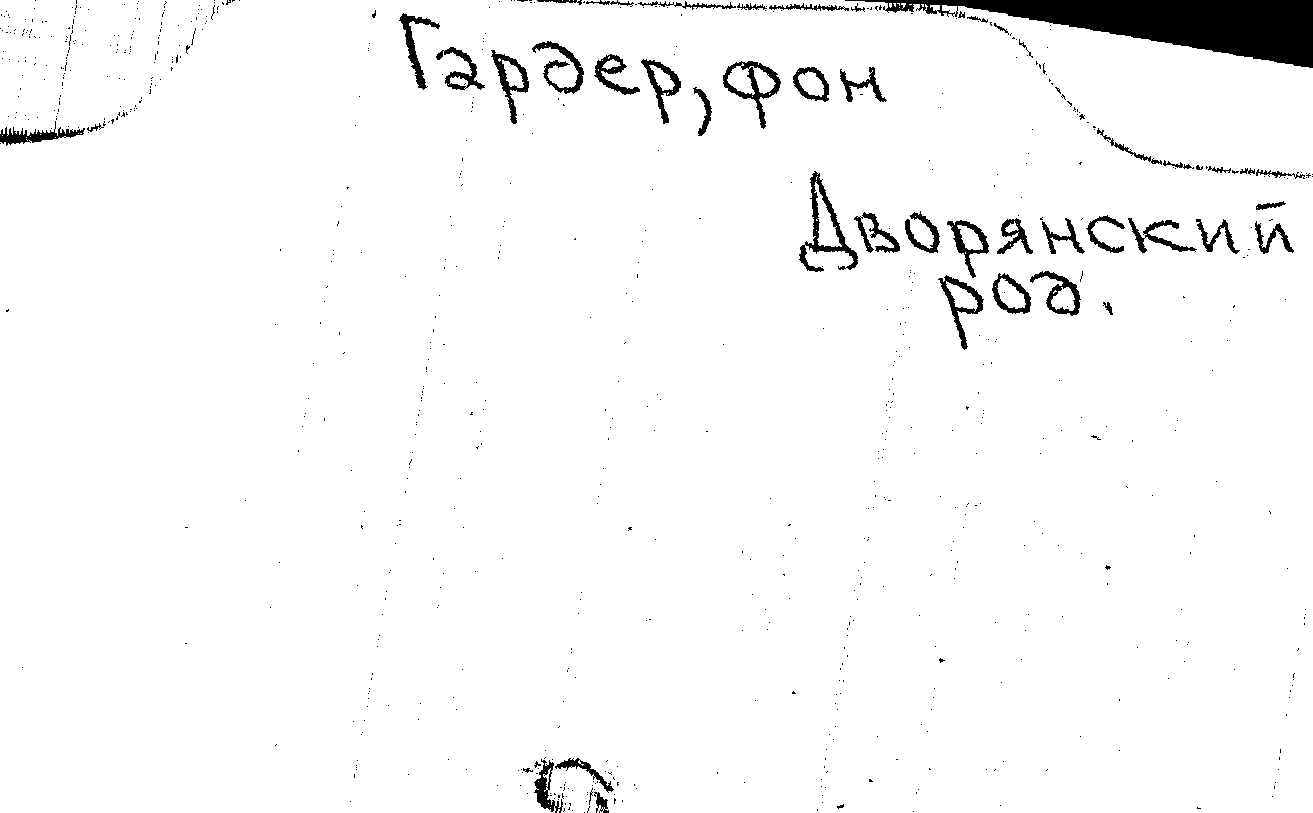 Гардер, фон
Дворянский
род.